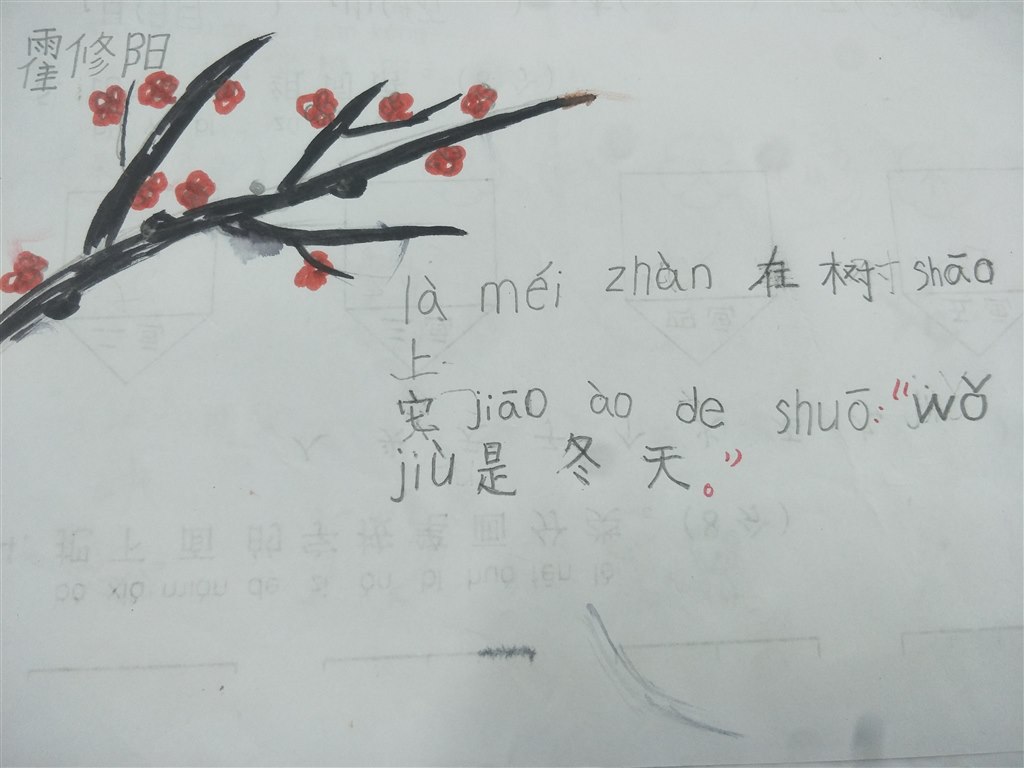 霍修阳
là méi zhàn 在 树 shāo
上
它 jiāo ào de shuō："wǒ
jiù 是 冬 天。"